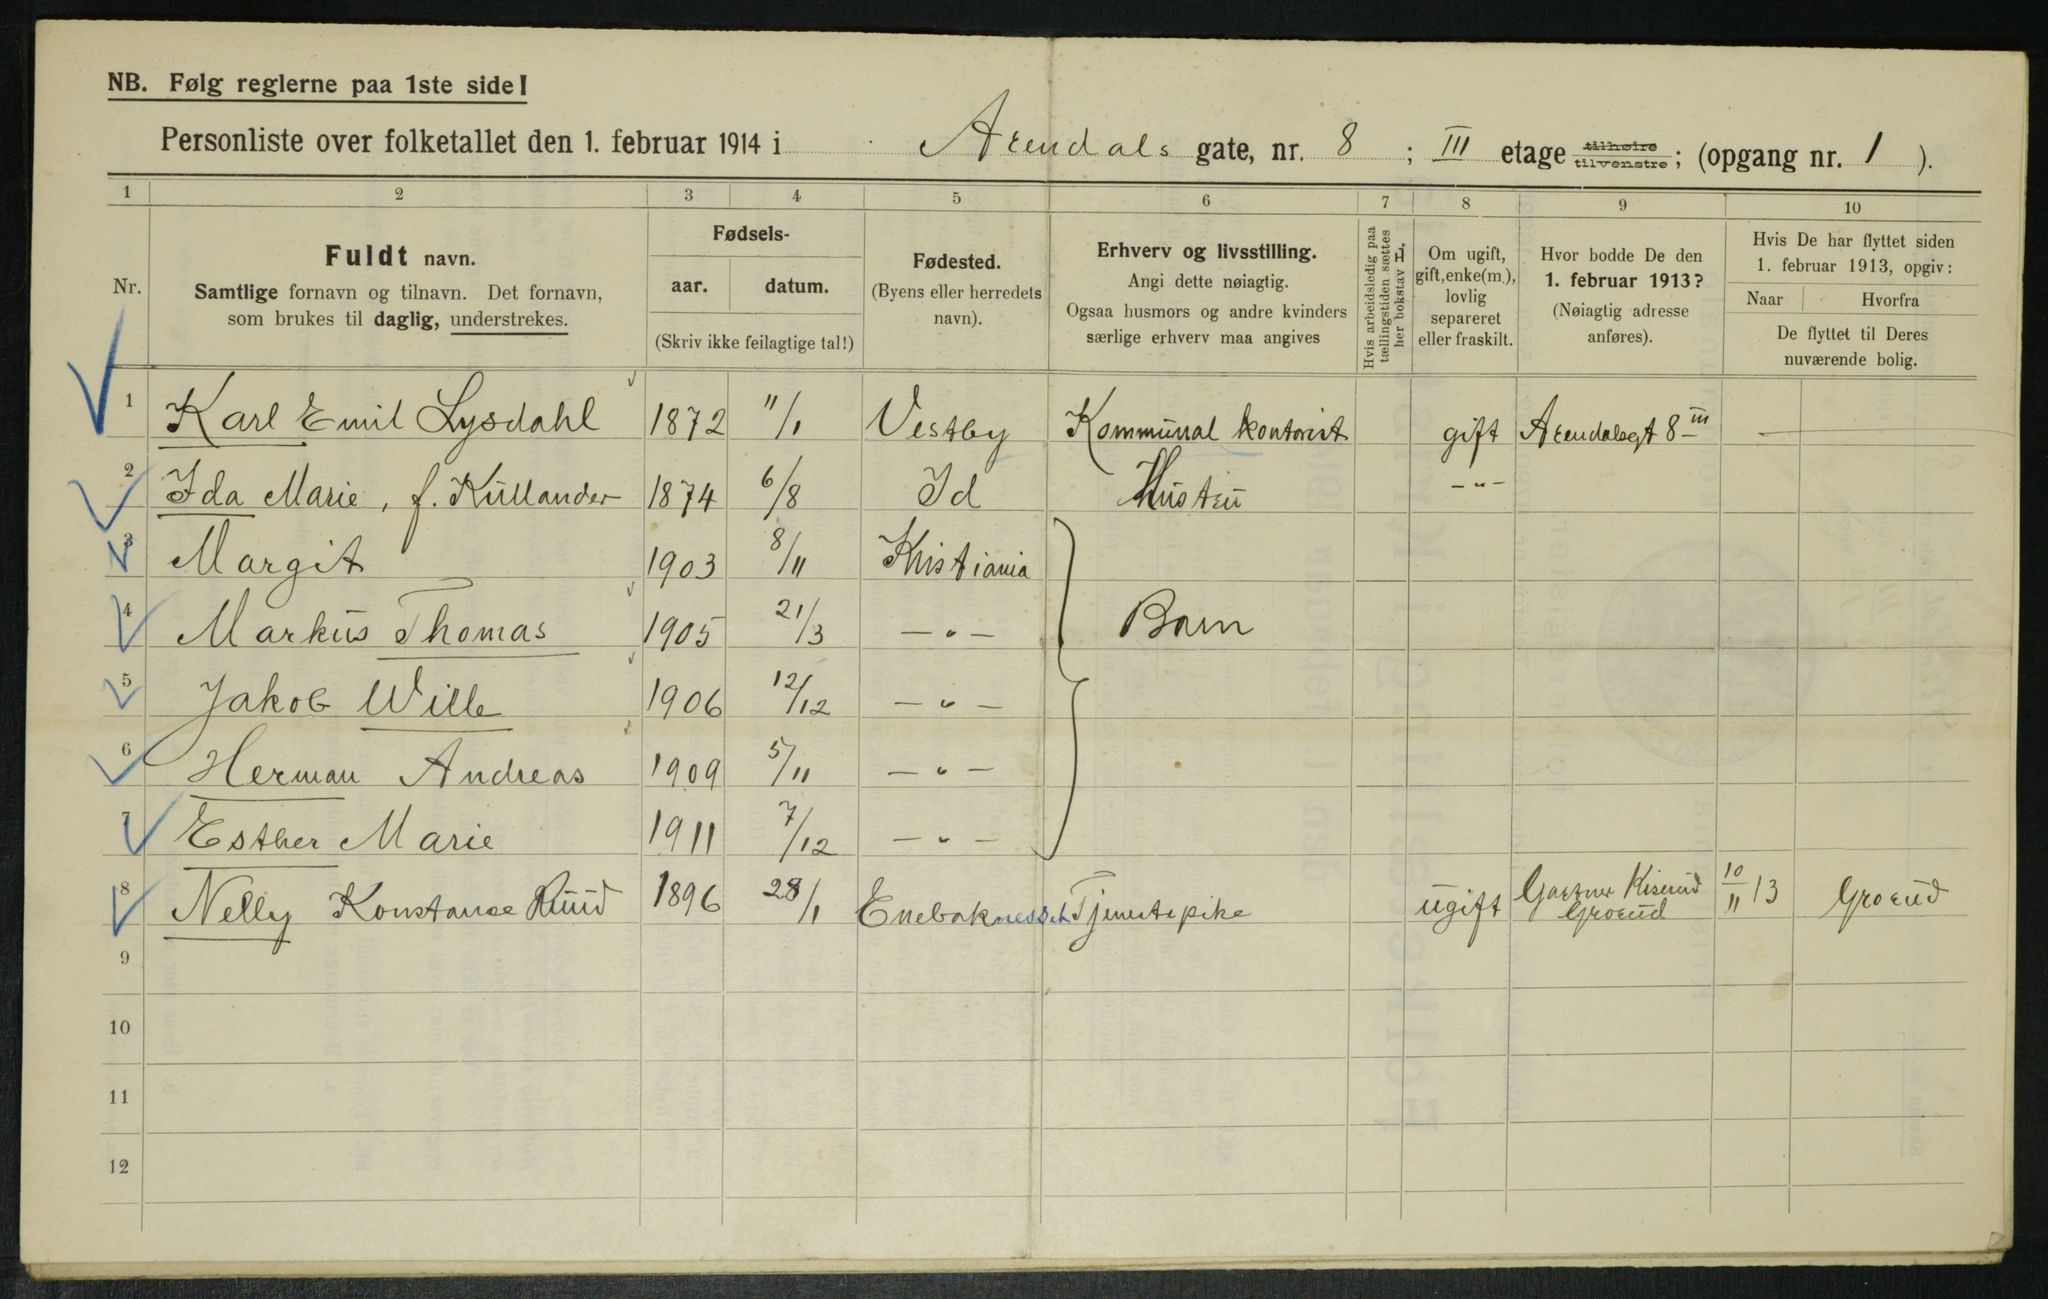 NB. Følg reglerne paa 1ste side!
Personliste over folketallet den 1. februar 1914 i Arendals gate, nr. 8 ; III etage tilhøire tilvenstre; (opgang nr. 1 ).
1 2 3 4 5 6 7 8 9 10
Nr.
Fuldt navn.
Samtlige fornavn og tilnavn. Det fornavn,
som brukes til daglig, understrekes.
Fødsels-
aar. datum.
(Skriv ikke feilagtige tal!)
Fødested.
(Byens eller herredets
navn).
Erhverv og livsstilling.
Angi dette nøiagtig.
Ogsaa husmors og andre kvinders
særlige erhverv maa angives
Hvis arbeidsledig paa
tællingstiden sættes
her bokstav L,
Om ugift,
gift, enke(m.),
lovlig
separeret
eller fraskilt.
Hvor bodde De den
1. februar 1913?
(Nøiagtig adresse
anføres).
Hvis De har flyttet siden
1. februar 1913, opgiv:
Naar Hvorfra
De flyttet til Deres
nuværende bolig.
1 Karl Emil Lysdahl 1872 11/1 Vestby Kommunal kontorist gift Arendalsgt 8 III —
2 Ida Marie, f. Kullander 1874 6/8 Id Hustru -"-
3 Margit 1903 8/11 Kristiania
4 Markus Thomas 1905 21/3 -"- Barn
5 Jakob Wille 1906 12/12 -"-
6 Herman Andreas 1909 5/11 -"-
7 Esther Marie 1911 7/12 -"-
8 Nelly Konstance Ruud 1896 28/1 Enebak Tjenestepike ugift Gartner Kiserud Grorud 10/11 13 Grorud
9
10
11
12